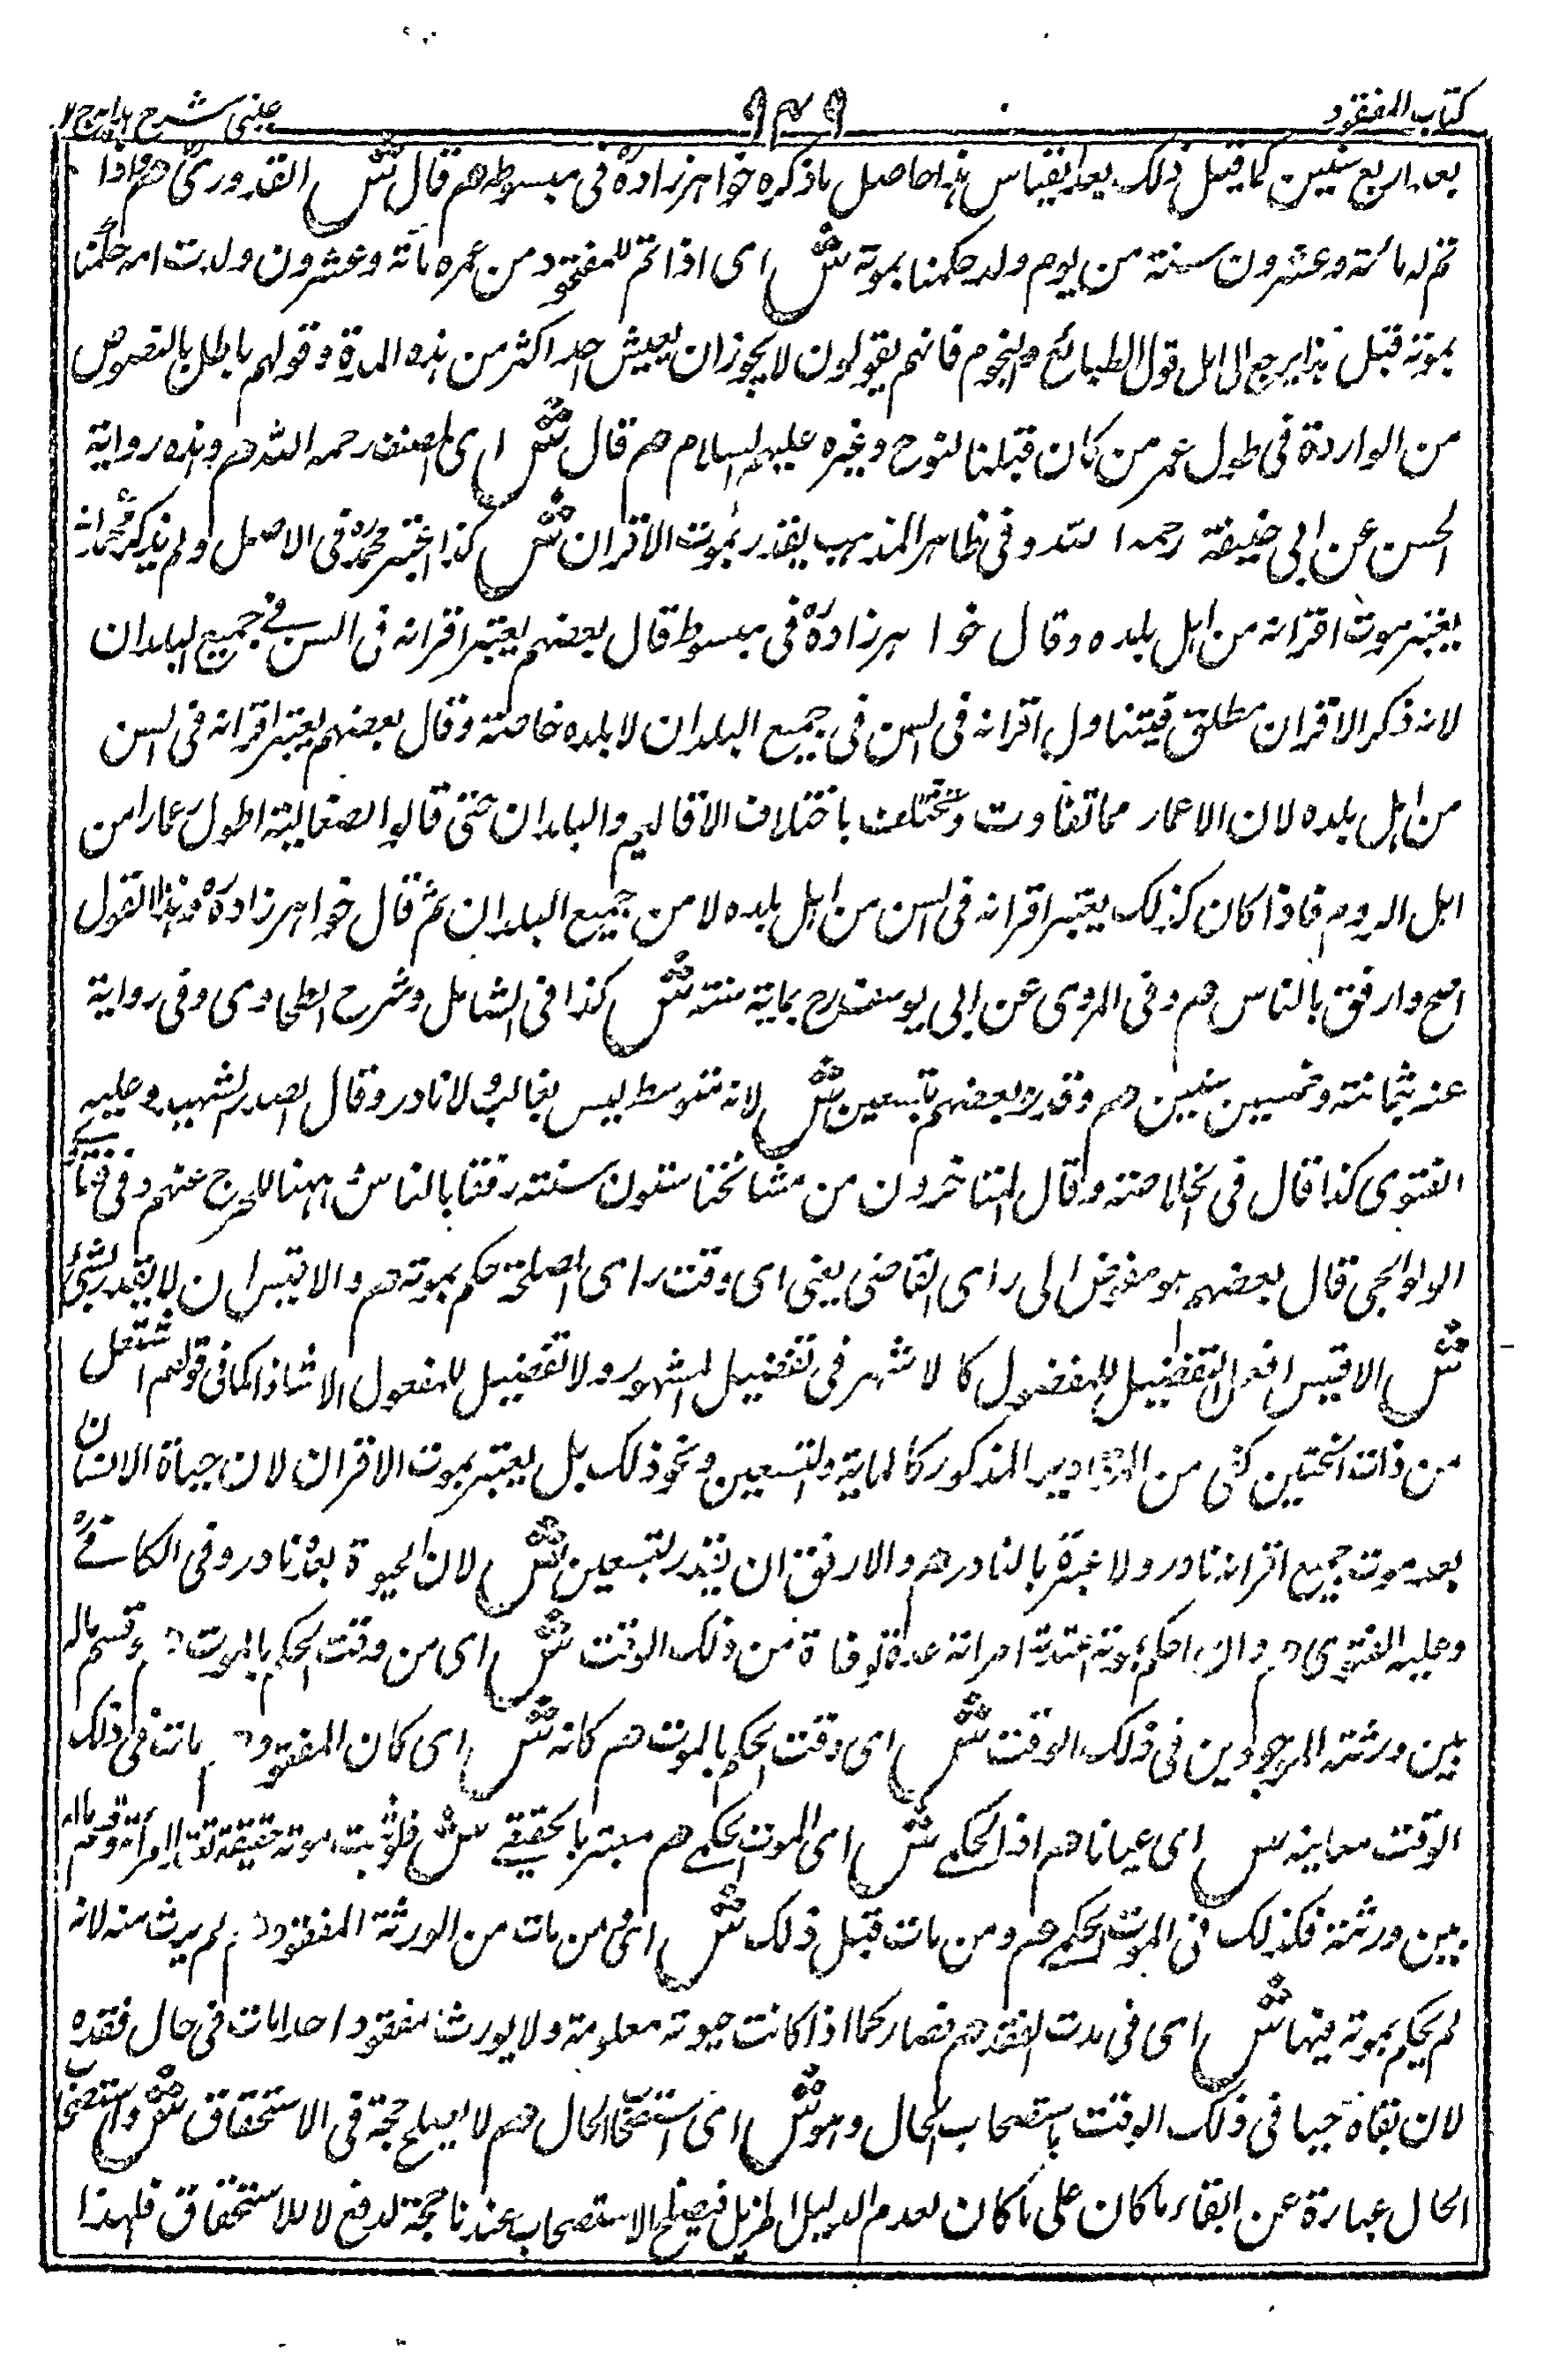 كتاب المفقود
٩٣٩
عينى شرح هدايه ج ٢
بعد اربع سنين كما قيل ذلك بعد القياس هذا حاصل ما ذكره خواهر زاده فى مبسوطه هم قال ش القدورى هم واذا
تم له مائة وعشرون سنة من يوم ولد حكمنا بموته ش اى اذا تم للمفقود من عمره مائة وعشرون ولدت امه حكمنا
بموته قيل هذا يرجع الى اهل قول الطبائع والنجوم فانهم يقولون لا يجوز ان يعيش احد اكثر من هذه المدة وقولهم باطل بالنصوص
من الواردة فى طول عمر من كان قبلنا لنوح وغيره عليهم السلام هم قال ش اى المصنف رحمه الله هم وهذه رواية
الحسن عن ابى حنيفة رحمه الله وفى ظاهر المذهب يقدر بموت الاقران ش كذا اعتبر محمد فى الاصل ولم يذكر محمد انه
يعتبر موت اقرانه من اهل بلده وقال خواهر زاده فى مبسوط قال بعضهم يعتبر اقرانه فى السن فى جميع البلدان
لانه ذكر الاقران مطلق فيتناول اقرانه فى السن فى جميع البلدان لا بلده خاصة وقال بعضهم يعتبر اقرانه فى السن
من اهل بلده لان الاعمار مما تفاوت وتختلف باختلاف الاقاليم والبلدان حتى قالوا الصقالبة اطول عمارا من
اهل الروم فاذا كان كذلك يعتبر اقرانه فى السن من اهل بلده لا من جميع البلدان ثم قال خواهر زاده وهذا القول
اصح وارفق بالناس هم وفى المروى عن ابى يوسف رح بماية سنة ش كذا فى الشامل وشرح الطحاوى وفى رواية
عنه بثمانة وخمسين سنين هم وقدره بعضهم بتسعين ش لانه متوسط ليس بغالب ولا نادر وقال الصدر الشهيد وعليه
الفتوى كذا قال فى الخلاصة وقال المتاخرون من مشائخنا ستون سنة رفقا بالناس ههنا للحرج عنهم وفى فتاوى
الولوالجى قال بعضهم هو مفوض الى راى القاضى يعنى اى وقت راى المصلحة حكم بموته هم والاقيس ان لا يقدر بشئ
ش الاقيس افعل التفضيل للمفضول كالاشهر فى تفضيل المشهور ولا تفضيل للمفعول الا شاذا كما فى قولهم اشتغل
من ذات النحيين كشى من المقادير المذكور كالماية والتسعين ونحو ذلك بل يعتبر بموت الاقران لان حياة الانسان
بعد موت جميع اقرانه نادر ولا عبرة بالنادر هم والارفق ان يقدر بتسعين ش لان الحيوة بعده نادر وفى الكافى
وعليه الفتوى هم واذا حكم بموته اعتدت امراته عدة الوفاة من ذلك الوقت ش اى من وقت الحكم بالموت هم وقسم ماله
بين ورثته الموجودين فى ذلك الوقت ش اى وقت الحكم بالموت هم كانه ش اى كان المفقود هم مات فى ذلك
الوقت معاينة ش اى عيانا هم اذ الحكمى ش اى الموت الحكمى هم معتبر بالحقيقى ش فلو ثبت موته حقيقة تعتد امراته وقسم ماله
بين ورثته فكذلك فى الموت الحكمى هم ومن مات قبل ذلك ش اى من مات من الورثة المفقود هم لم يرث منه لانه
لم يحكم بموته فيها ش اى فى مدت الفقد هم فصار كما اذا كانت حيوته معلومة ولا يورث مفقود احدا مات فى حال فقده
لان بقاه حيا فى ذلك الوقت باستصحاب الحال وهو ش اى استصحاب الحال هم لا يصلح حجة فى الاستحقاق ش واستصحاب
الحال عبارة عن ابقاء ما كان على ما كان لعدم الدليل المزيل فيصلح الاستصحاب عندنا حجة لدفع لا للاستحقاق فلهذا